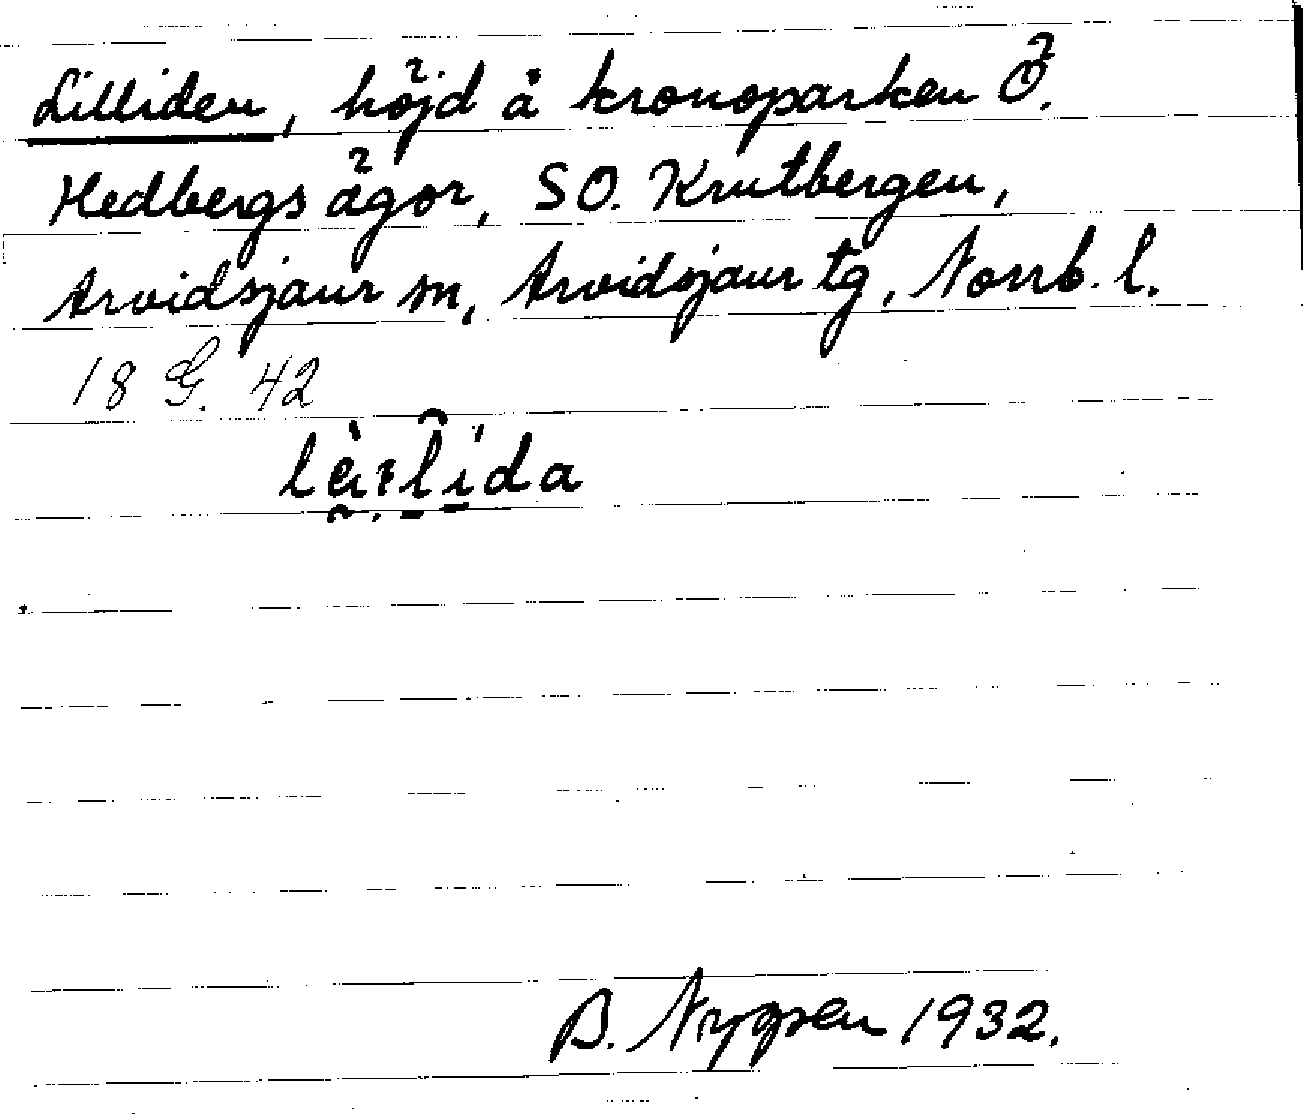 Lilliden, höjd å kronoparken Ö.
Hedbergs ägor, SO. Krutbergen,
Arvidsjaur sn, Arvidsjaur tg, Norrb. l.
18 G. 42
B. 1932.